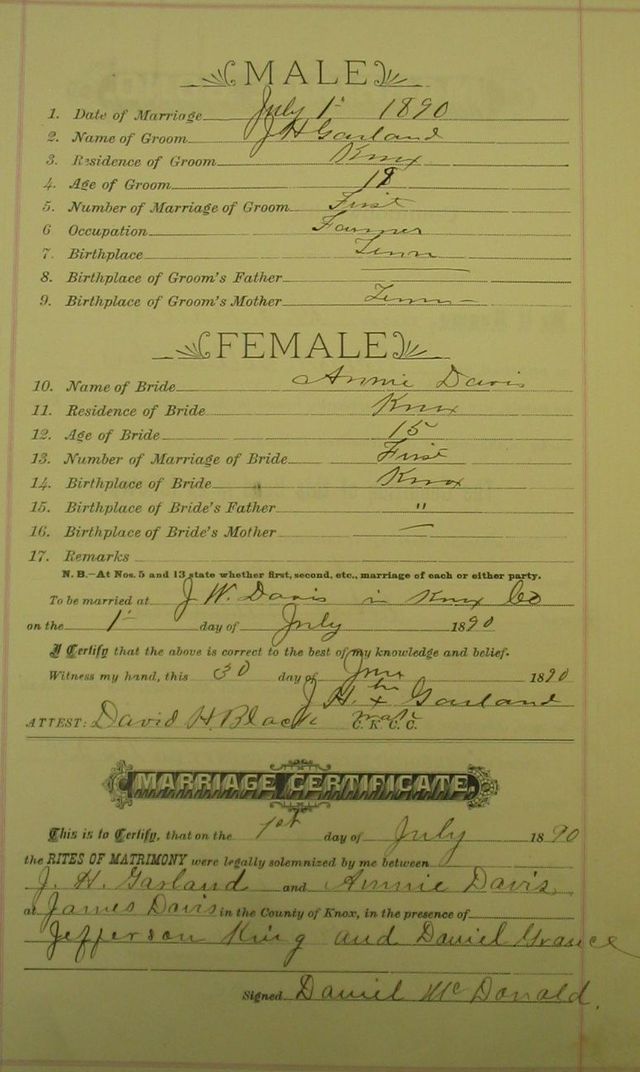 MALE
1. Date of Marriage July 1st 1890
2. Name of Groom J H Garland
3. Residence of Groom Knox
4. Age of Groom
5. Number of Marriage of Groom First
6 Occupation Farmer
7. Birthplace Tenn
8. Birthplace of Groom's Father —
9. Birthplace of Groom's Mother Tenn –
FEMALE
10. Name of Bride Annie Davis
11. Residence of Bride Knox
12. Age of Bride 15
13. Number of Marriage of Bride First
14. Birthplace of Bride Knox
15. Birthplace of Bride's Father "
16. Birthplace of Bride's Mother —
17. Remarks
N. B.—At Nos. 5 and 13 state whether first, second, etc., marriage of each or either party.
To be married at J W. Davis in Knox Co
on the 1st day of July 1890
I Certify that the above is correct to the best of my knowledge and belief.
Witness my hand, this 30 day of June 1890
J H. his x Garland
ATTEST: David H. Black mark C. K. C. C.
MARRIAGE CERTIFICATE.
This is to Certify, that on the 1st day of July 1890
the RITES OF MATRIMONY were legally solemnized by me between
J. H. Garland and Annie Davis
at James Davis in the County of Knox, in the presence of
Jefferson King and Daniel
Signed Daniel Mc Donald.